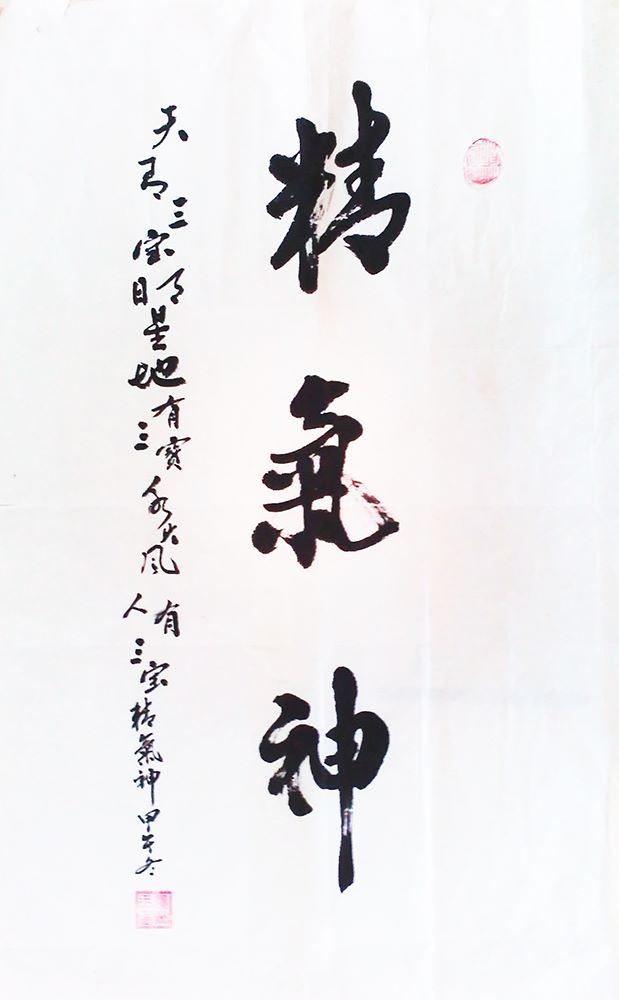 精氣神
天有三宝日月星地有三寶水火風人有三宝精氣神甲午冬